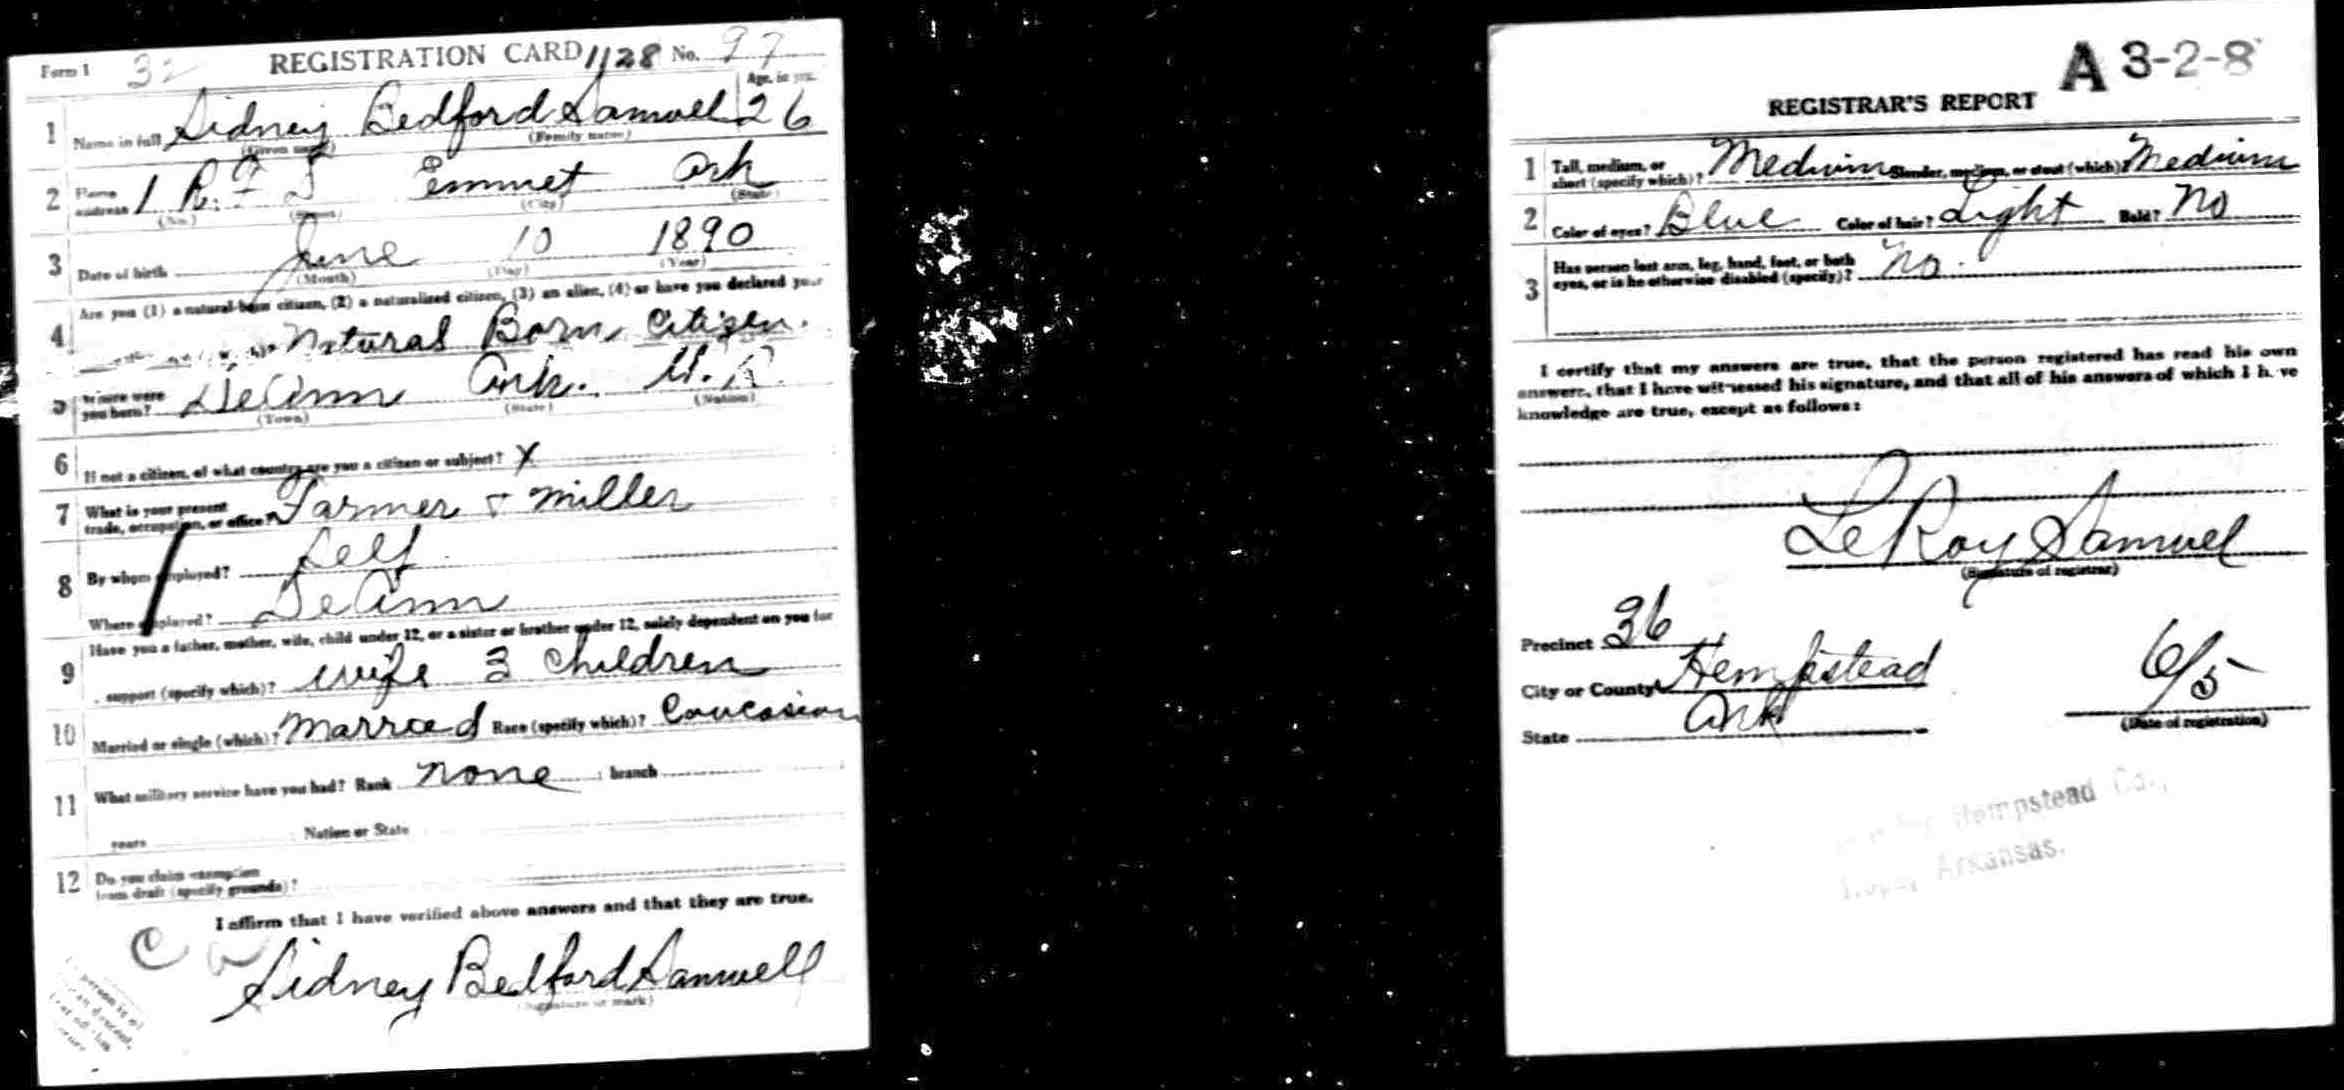 Form 1 32 REGISTRATION CARD 1128 No. 97
Age, in yrs.
1 Name in full Sidney Bedford Samuell 26
(Given name) (Family name)
2 Home address 1 R. F D Emmet Ark
(No.) (Street) (City) (State)
3 Date of birth June 10 1890
(Month) (Day) (Year)
4 Are you (1) a natural-born citizen, (2) a naturalized citizen, (3) an alien, (4) or have you declared your
Natural Born Citizen.
5 Where were you born? DeAnn Ark. U.
(Town) (State) (Nation)
6 If not a citizen, of what country are you a citizen or subject? X
7 What is your present
trade, occupation, or office? Farmer & miller
8 By whom employed? Self
Where employed? DeAnn
9 Have you a father, mother, wife, child under 12, or a sister or brother under 12, solely dependent on you for
support (specify which)? wife 3 children
10 Married or single (which)? Marraed Race (specify which)? Coucasion
11 What military service have you had? Rank none ; branch
years Nation or State
12 Do you claim exemption
from draft (specify grounds)?
I affirm that I have verified above answers and that they are true.
C
Sidney Bedford Samuell
(Signature or mark)
A 3-2-8
REGISTRAR'S REPORT
1 Tall, medium, or
short (specify which)? Medium Slender, medium, or stout (which)? Medium
2 Color of eyes? Blue Color of hair? Light Bald? No
3 Has person lost arm, leg, hand, foot, or both
eyes, or is he otherwise disabled (specify)? No.
I certify that my answers are true, that the person registered has read his own
answers, that I have witnessed his signature, and that all of his answers of which I have
knowledge are true, except as follows:
LeRoy Samuel
(Signature of registrar)
Precinct 36
City or County Hempstead 6/5
State Ark (Date of registration)
Hempstead Co.,
Arkansas.